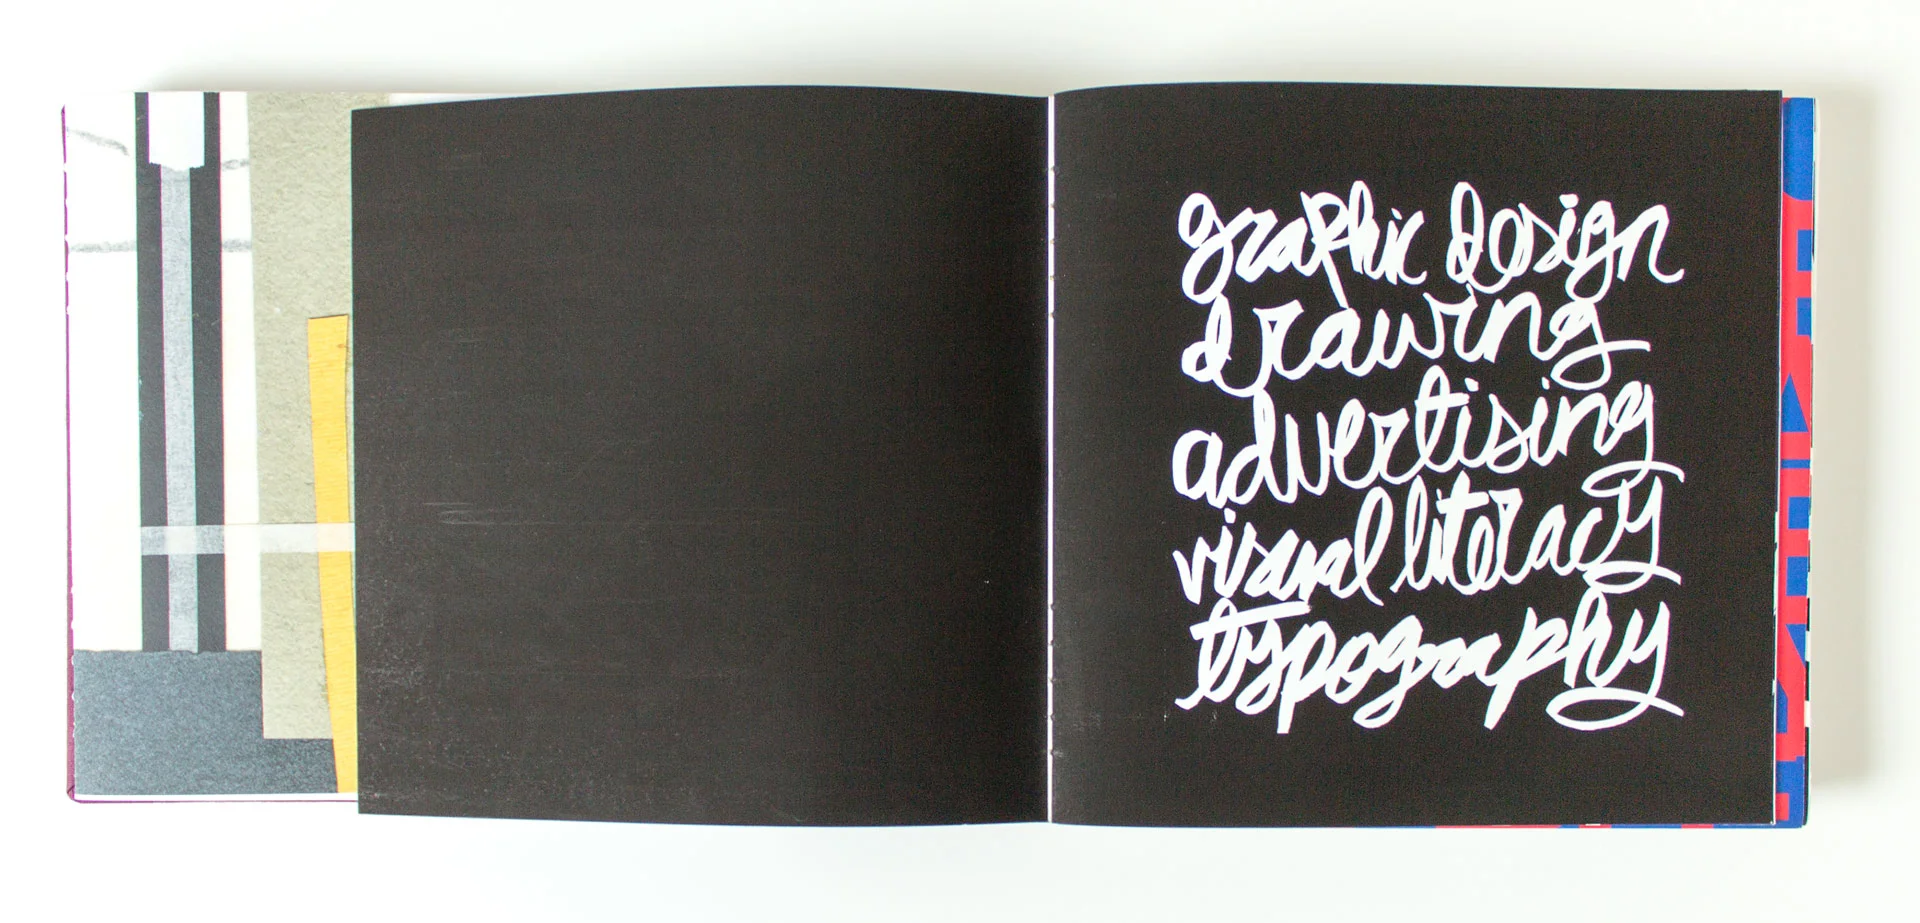 graphic design
drawing
advertising
visual literacy
typography